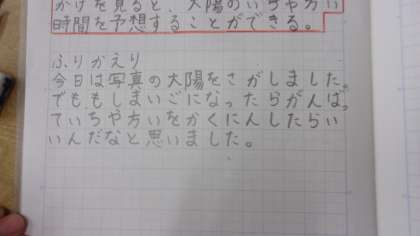 かげを見ると、太陽のいちや方い
時間を予想することができる。
ふりかえり
今日は写真の太陽をさがしました。
でももしまいごになったらがんばっ
ていちや方いをかくにんしたらい
いんだなと思いました。